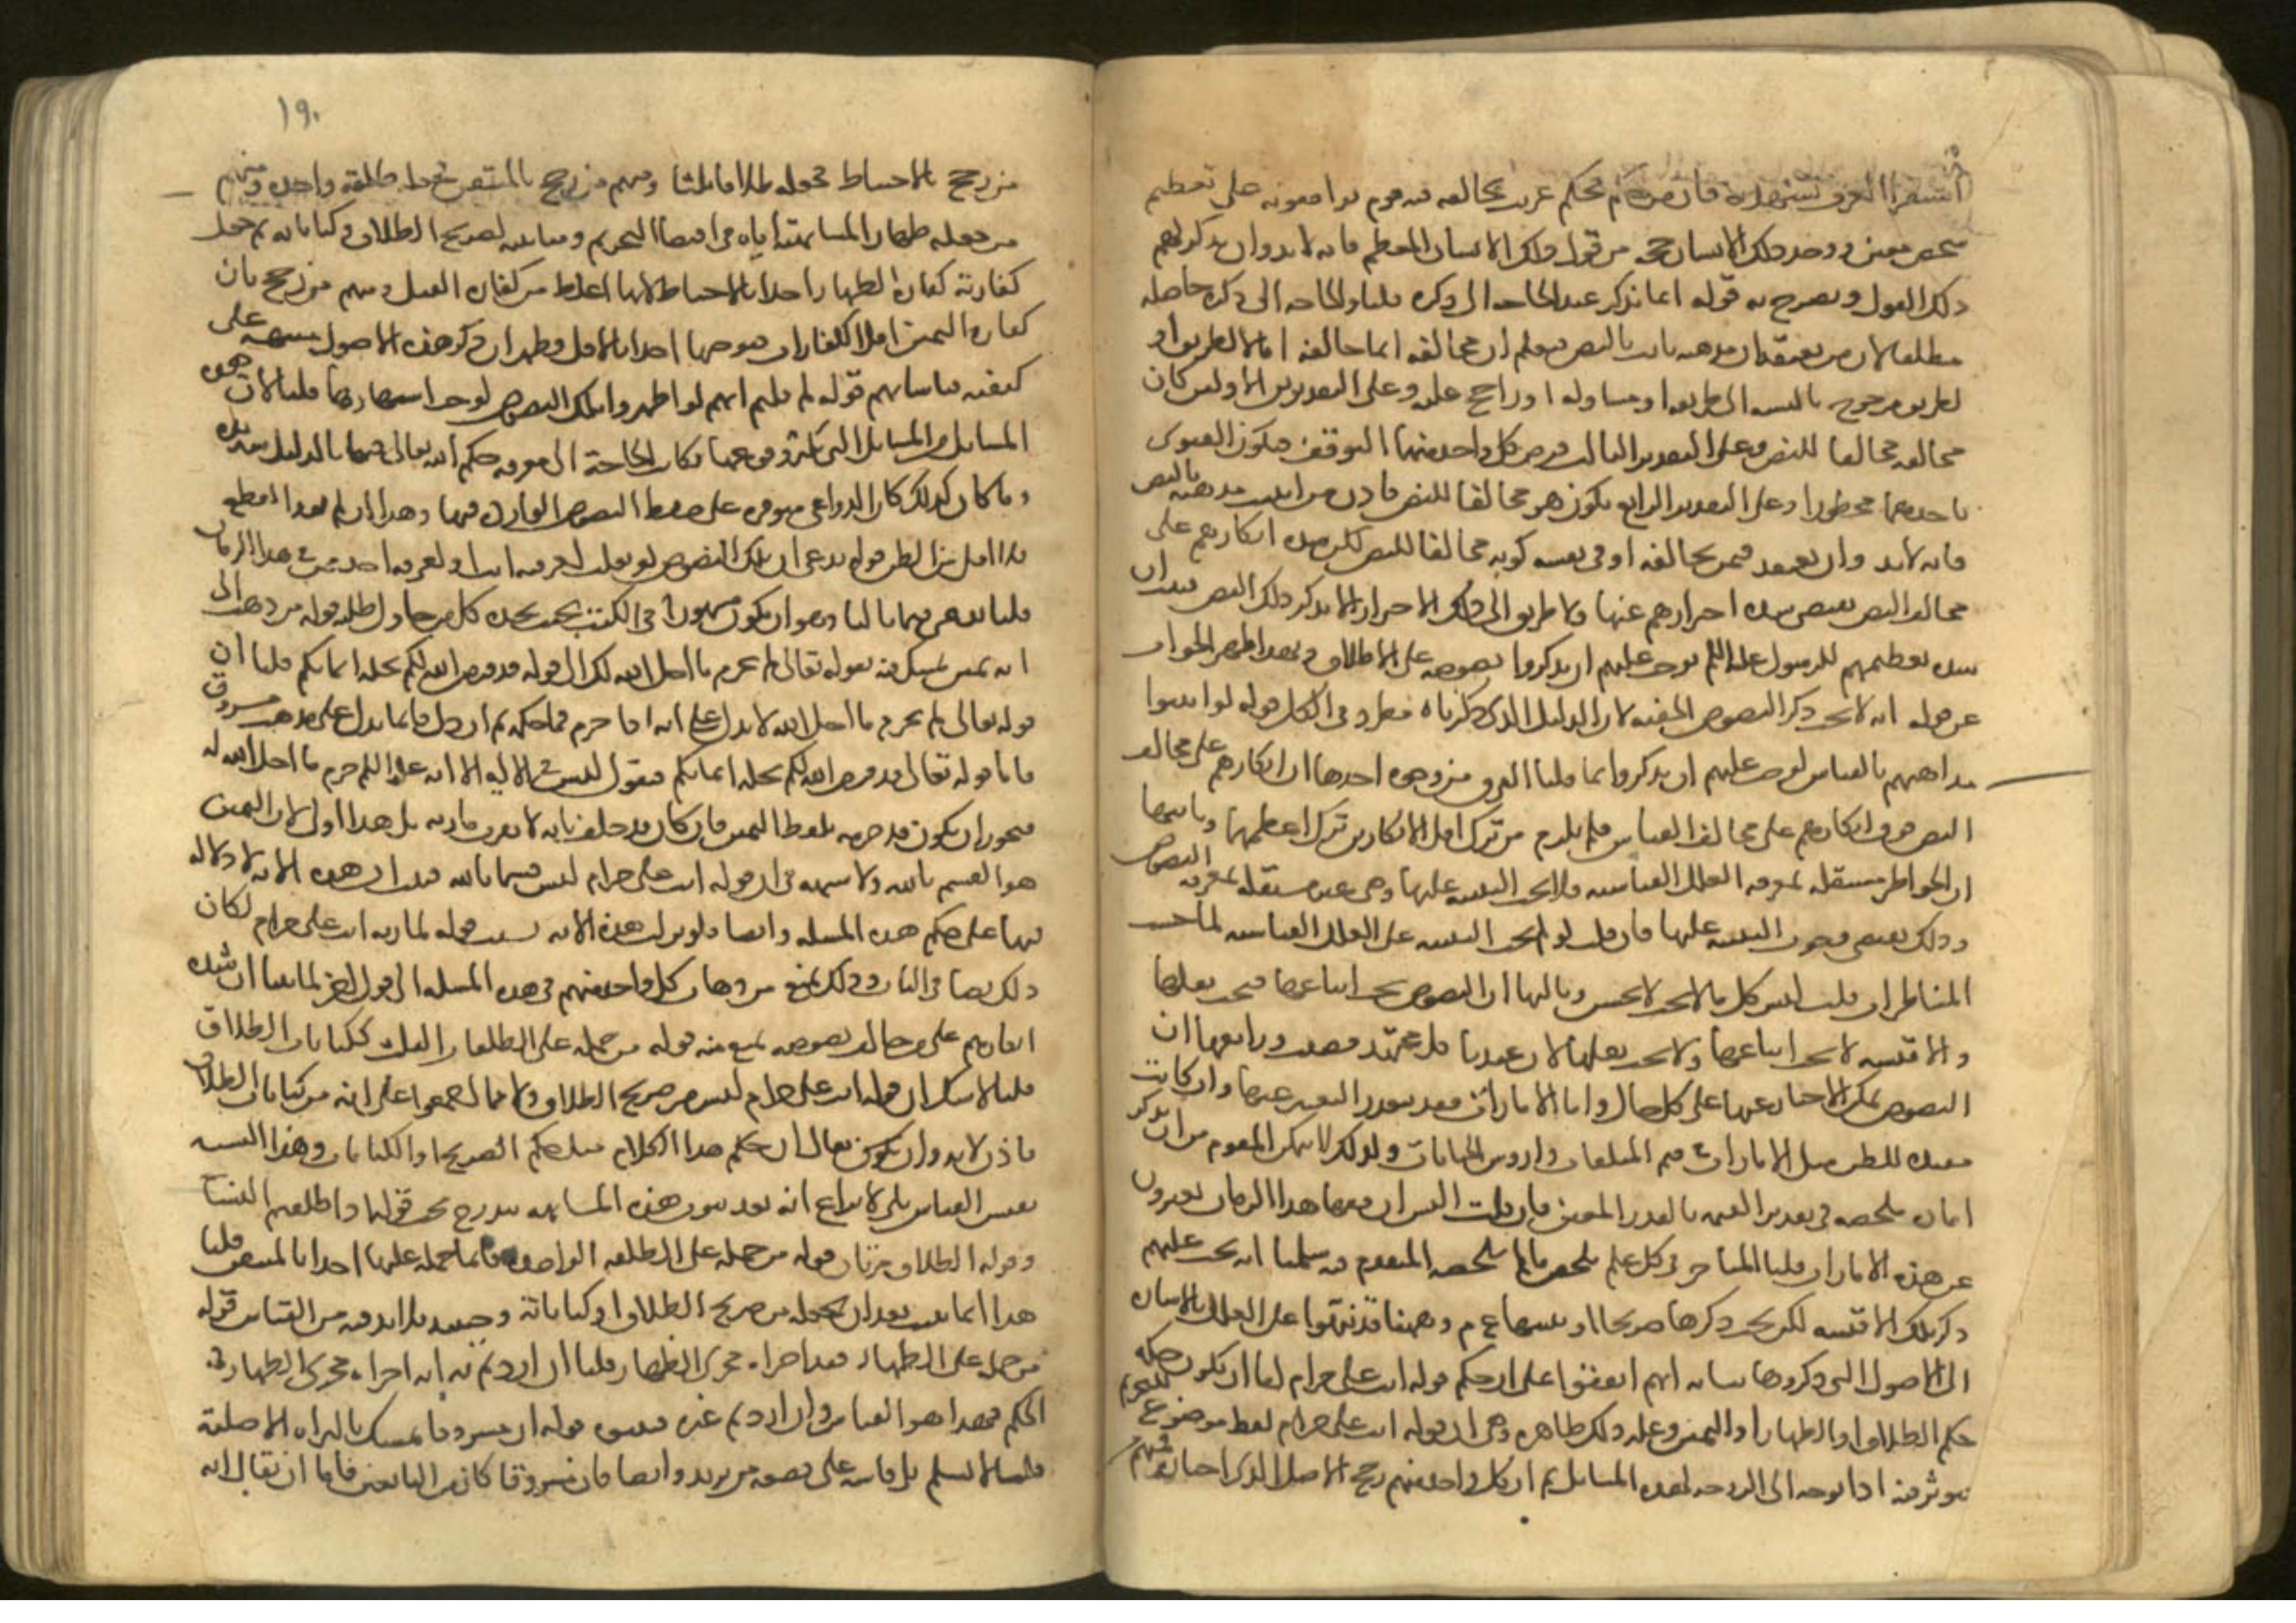 استقراء العرف يشهد به فان من حكم بحكم غريب يخالفه فيه قوم يوافقونه على تعظيم
شخص معين ووجد ذلك الانسان حجة من قول ذلك الانسان المعظم فانه لا بد وان يذكر لهم
ذلك القول ويصرح به قوله انما نذكر عند الحاجة الى ذكره قلنا والحاجة الى ذكره حاصلة
مطلقا لان من يعتقد ان مذهبه ثابت بالنص فيعلم ان مخالفه انما خالفه اما لا لطريق او
لطريق مرجوح بالنسبة الى طريقه او مساو له او راجح عليه وعلى التقديرين الاولين كان
مخالفه مخالفا للنص وعلى التقدير الثالث فرض كل واحد منهما التوقف فيكون الفتوى
باحدهما محظورا وعلى التقدير الرابع يكون هو مخالفا للنص فاذن من اثبت مذهبه بالنص
فانه لا بد وان يعتقد فيمن يخالفه او في نفسه كونه مخالفا للنص لكن شدة انكارهم على
مخالف النص يقتضي شدة احترازهم عنها ولا طريق الى ذلك الاحتراز الا بذكر ذلك النص فثبت ان
شدة تعظيمهم للرسول عليه السلم يوجب عليهم ان يذكروا نصوصه على الاطلاق وبهذا ظهر الجواب
عن قوله انه لا يجب ذكر النصوص الخفية لان الدليل الذي ذكرناه مطرد في الكل قوله لو اثبتوا
مذاهبهم بالقياس لوجب عليهم ان يذكروا انما قلنا الفرق من وجوه احدها ان انكارهم على مخالف
النص فوق انكارهم على مخالف القياس فلم يلزم من ترك اقل الانكارين ترك اعظمهما وثانيها
ان الخواطر مستقلة بمعرفة العلل القياسية فلا يجب التنبيه عليها وهي غير مستقلة بمعرفة النصوص
وذلك يقتضي وجوب التنبيه عليها فان قلت لو لم يجب التنبيه على العلل القياسية لما حسنت
المناظرات قلت ليس كل ما لا يجب لا يحسن وثالثها ان النصوص يجب اتباعها فيجب نقلها
والاقيسة لا يجب اتباعها ولا يجب نقلها لان عندنا كل مجتهد مصيب ورابعها ان
النصوص يمكن الاخبار عنها على كل حال واما الامارات فقد يتعذر التعبير عنها وان كانت
مفيدة للظن مثل الامارات في قيم المتلفات واروش الجنايات ولذلك لا يمكن المقوم من ان يذكر
امارة ملخصة في تقدير القيمة بالقدر المعين فان قلت اليس ان فقهاء هذا الزمان يعبرون
عن هذه الامارات قلنا المتاخر في كل علم يلخص ما لم يلخصه المتقدم فيه سلمنا انه يجب عليهم
ذكر تلك الاقيسة لكن يجب ذكرها صريحا او تنبيها ع م وههنا قد نبهوا على العلل بالاشارة
الى الاصول التي ذكروها بيانه انهم اتفقوا على ان حكم قوله انت علي حرام اما ان يكون حكمه
حكم الطلاق او الظهار او اليمين وعلة ذلك ظاهرة وهي ان قوله انت علي حرام لفظ موضوع للتحريم
يؤثر فيه اذا توجه الى الزوجة لهذه المسائل ثم ان كل واحد منهم رجح الاصل الذي اختاره فمنهم
١٩٠
من رجح بالاحتياط فجعله طلاقا ثلثا ومنهم من رجح بالمتيقن فجعله طلقة واحدة ومنهم
من جعله ظهارا لمشابهته اياه في اقتضاء التحريم ومباينته لصريح الطلاق وكناياته ثم جعل
كفارته كفارة الظهار اخذا بالاحتياط لانها اغلظ من كفارة اليمين ومنهم من رجح بان
كفارة اليمين اقل الكفارات فيوجبها اخذا بالاقل فظهر ان ذكر هذه الاصول منبهة على
كيفية قياساتهم قوله لم قلتم انهم لو اظهروا تلك النصوص لوجب اشتهارها قلنا لان هذه
المسائل من المسائل التي يكثر وقوعها فكانت الحاجة الى معرفة حكم الله تعالى فيها بالدليل شديدة
وما كان كذلك كان الدواعي متوفرة على حفظ النصوص الواردة فيها وهذا ان لم يفد القطع
فلا اقل من الظن قوله ندعي ان تلك النصوص لو نقلت لعرفه اما او لعرفه احد من في هذا الزمان
قلنا ندعي فيهما ثالثا وهو ان يكون مشهورا في الكتب بحيث يجده كل من حاول طلبه قوله من ذهب الى
انه يمين تمسك فيه بقوله تعالى لم تحرم ما احل الله لك الى قوله قد فرض الله لكم تحلة ايمانكم قلنا ان
قوله تعالى لم تحرم ما احل الله لا يدل على انه اذا حرم فما حكمه ثم ان دل فانما يدل على مذهب مسروق
فاما قوله تعالى قد فرض الله لكم تحلة ايمانكم فنقول ليس في الاية الا انه عليه السلم حرم ما احل الله له
فيجوز ان يكون قد حرمه بلفظ اليمين فان كان قد حلف بانه لا يقرب مارية بل هذا اولى لان اليمين
هو القسم بالله ولا شبهة في ان قوله انت علي حرام ليس قسما بالله فثبت ان هذه الاية لا دلالة
فيها على حكم هذه المسئلة وايضا فلو نزلت هذه الاية بسبب قوله لمارية انت علي حرام لكان
ذلك نصا في الباب وذلك يمنع من ذهاب كل واحد منهم في هذه المسئلة الى قول اخر لما بينا ان شدة
انكارهم على من خالف نصوصه يمنع منه قوله من حمله على الطلقات الثلث ككنايات الطلاق
قلنا لا شك ان قوله انت علي حرام ليس من صريح الطلاق ولا مما اجمعوا على انه من كنايات الطلاق
فاذن لا بد وان يكون يقال ان حكم هذا الكلام مثل حكم الصريح او الكنايات وهذا التشبيه
نفس القياس بلى لا نزاع انه بعد ثبوت هذه المشابهة يندرج تحت قولنا واطلقهم النساء
وقوله الطلاق مرتان قوله من حمله على الطلقة الواحدة فانما حمله عليها اخذا بالمتيقن قلنا
هذا انما يثبت بعد ان يجعله من صريح الطلاق او كناياته وحينئذ فلا بد فيه من القياس قوله
من حمله على الظهار فقد اجراه مجرى الظهار قلنا ان اردتم به انه اجراه مجرى الظهار في
الحكم فهذا هو القياس وان اردتم غيره فبينوه قوله ان مسروقا تمسك بالبراءة الاصلية
قلنا لا نسلم بل قاسه على قصعة من ثريد وايضا فان مسروقا كان من التابعين فاما ان يقال انه